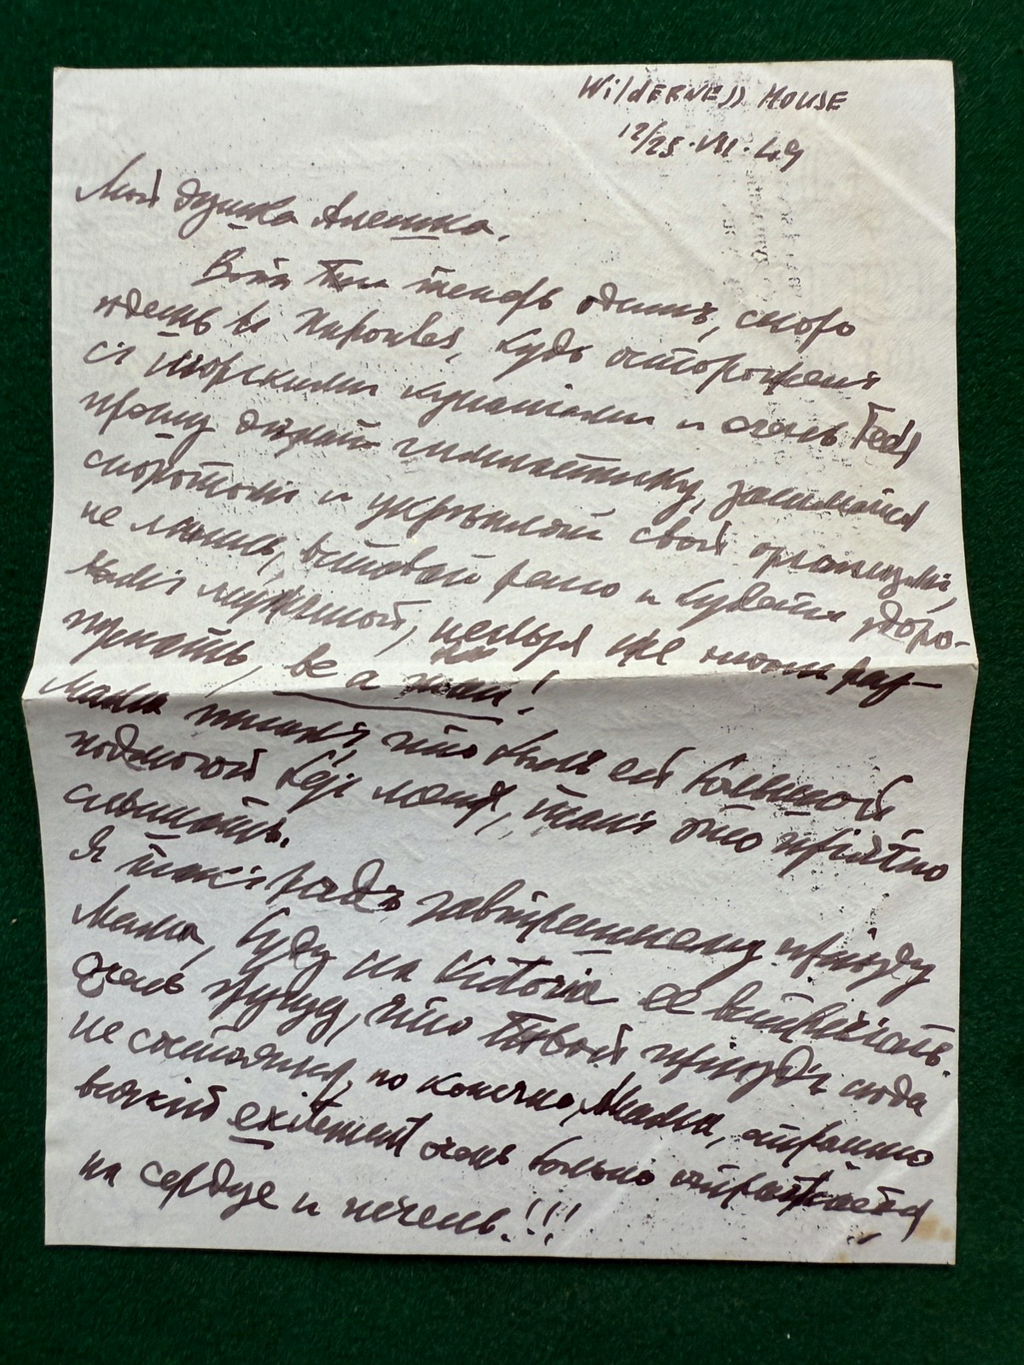 WILDERNESS HOUSE
12/25·VII·49
Мой душка Алешка.
Вотъ Ты теперь одинъ, скоро
ѣдешь въ будь остороженъ
съ морскими купаніями и очень Тебя
прошу дѣлай гимнастику, занимайся
спортомъ и укрѣпляй свой организмъ,
не лѣнись, вставай рано и будешь здоро-
мужчиной, нельзя же такъ раз-
be a man!
Мама пишетъ что былъ ей большой
подмогой безъ меня, такъ это пріятно
слышать.
Я такъ радъ завтрешнему пріѣзду
Мама, буду на Victoria ее встрѣчать.
Очень грущу, что Твой пріѣздъ сюда
не состоялся, но конечно, Мама, страшно
всякій exitement очень больно отражается
на сердце и печень!!!